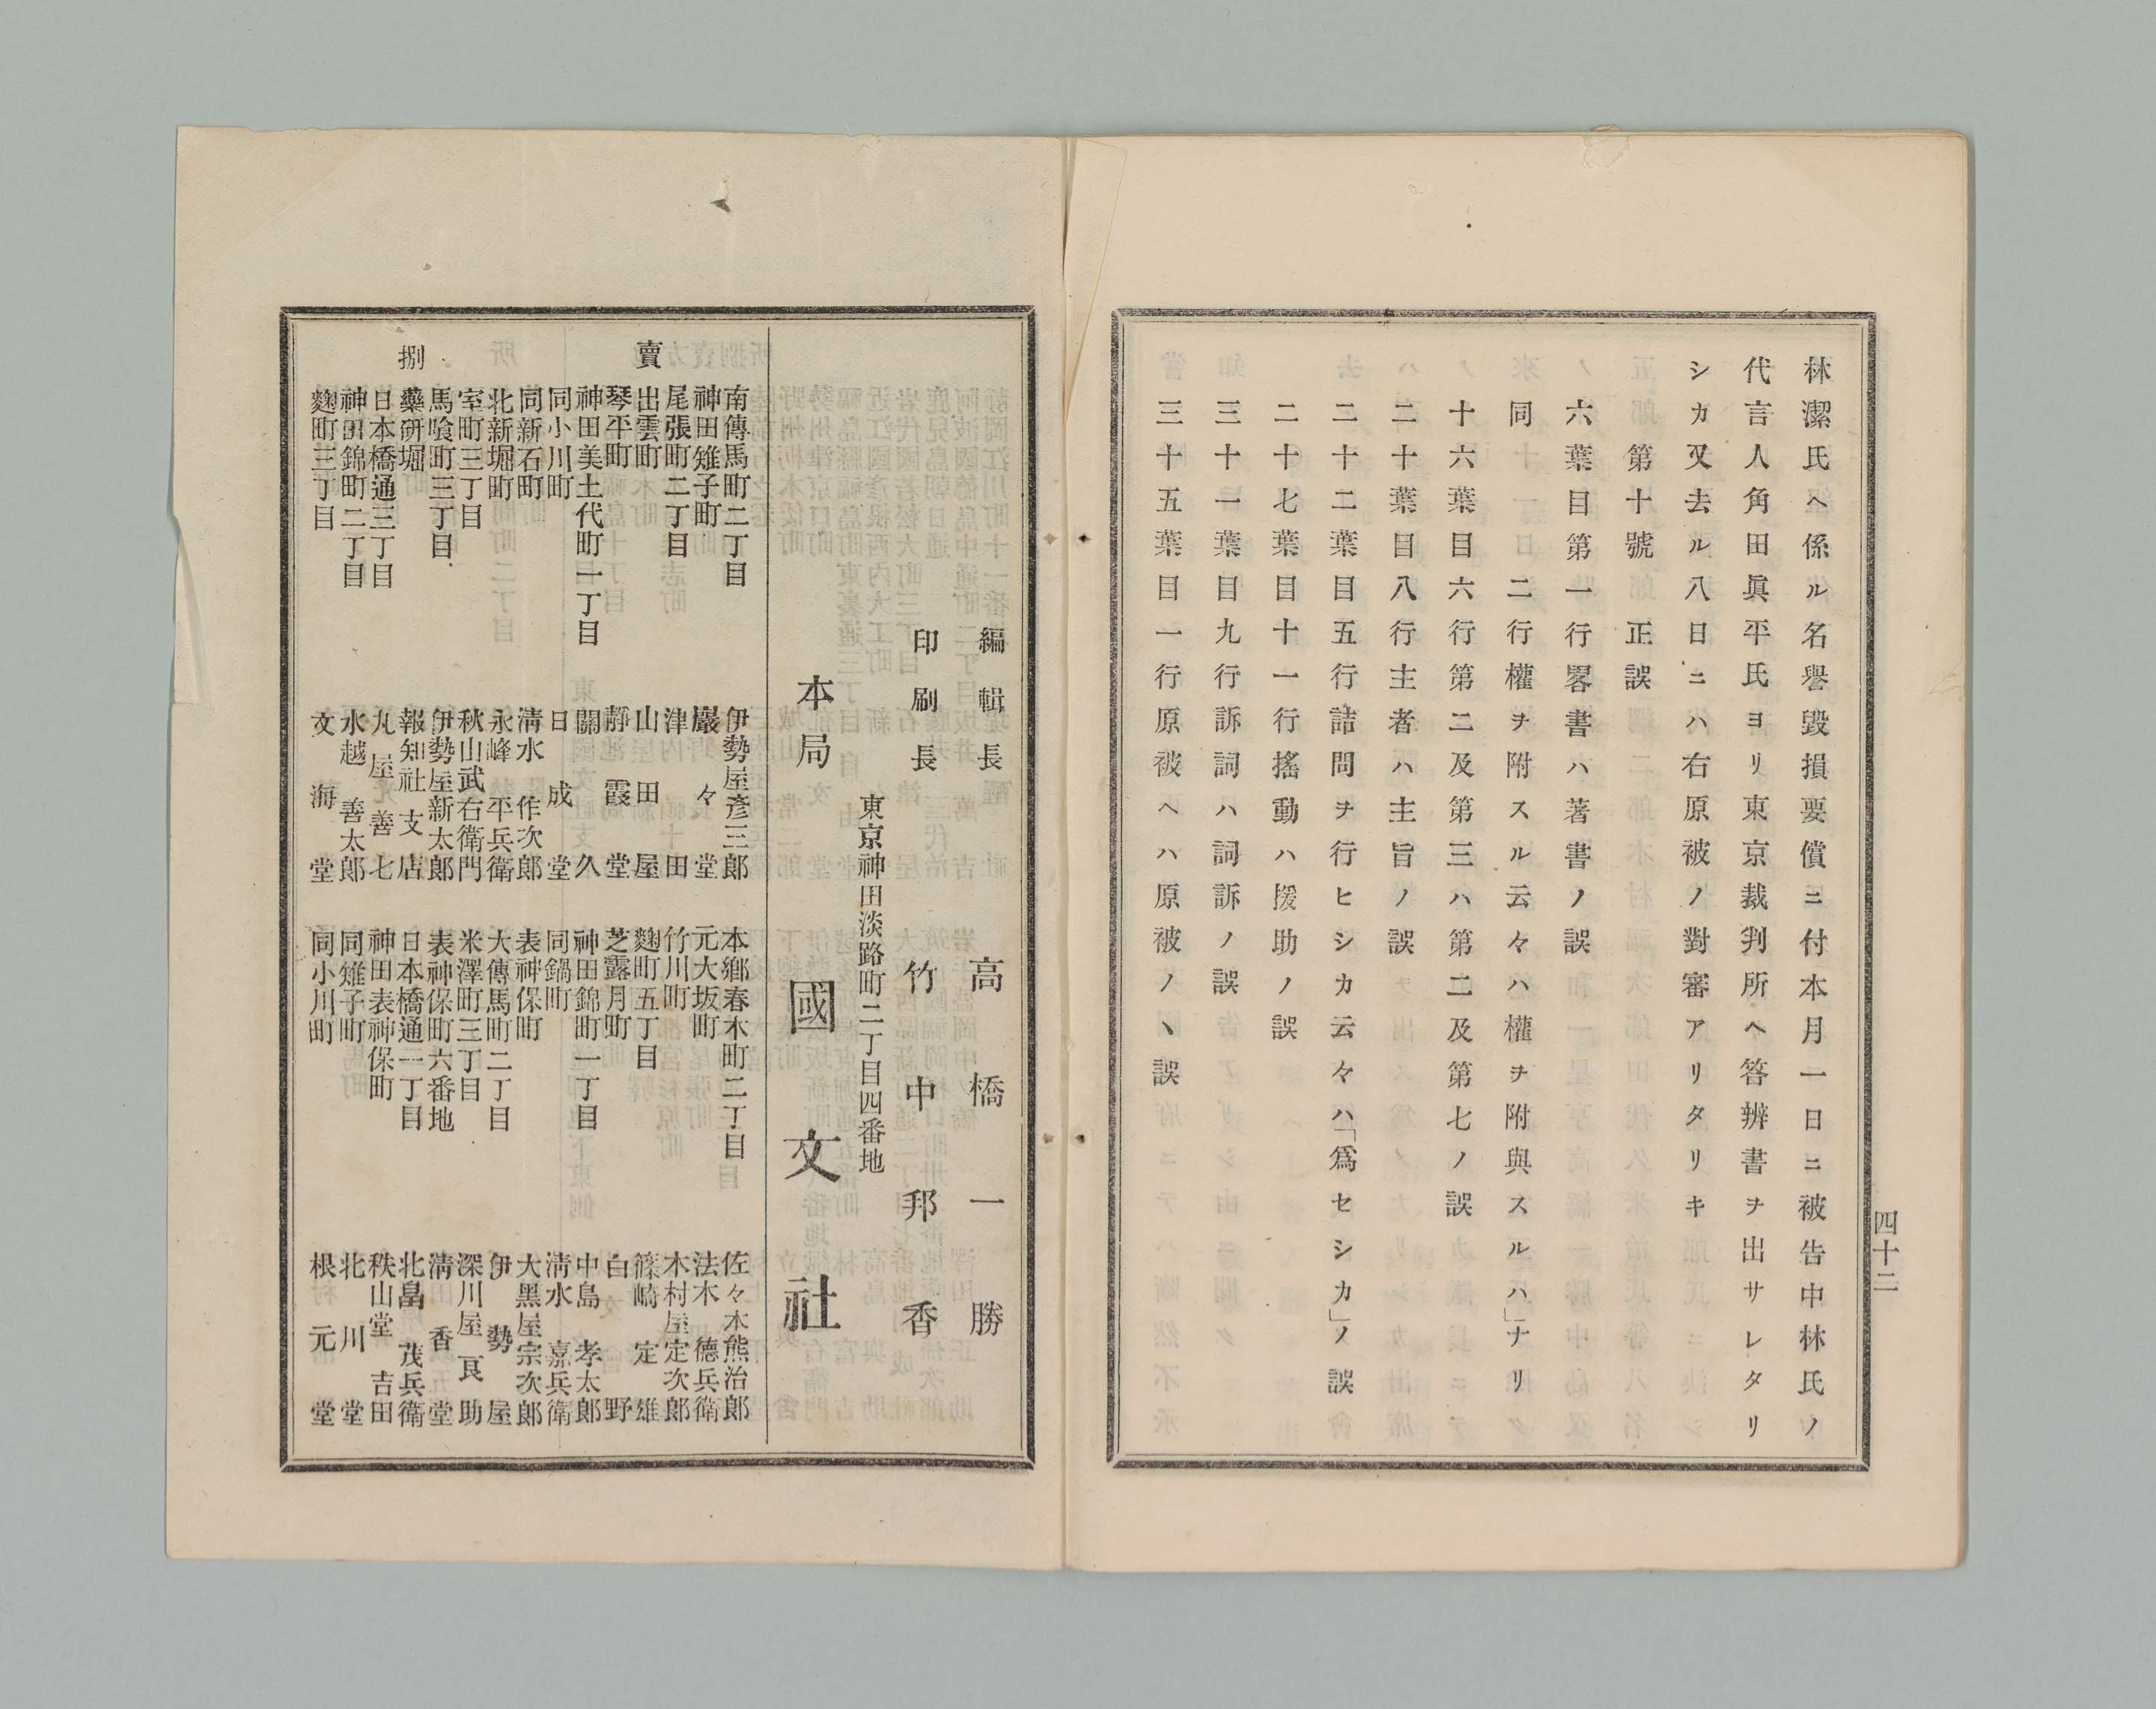 四十二
林潔氏ヘ係ル名譽毀損要償ニ付本月一日ニ被告中林氏ノ
代言人角田眞平氏ヨリ東京裁判所ヘ答辨書ヲ出サレタリ
シカ又去ル八日ニハ右原被ノ對審アリタリキ
第十號正誤
六葉目第一行畧書ハ著書ノ誤
同　二行權ヲ附スル云々ハ權ヲ附與スルハ」ナリ
十六葉目六行第二及第三ハ第二及第七ノ誤
二十葉目八行主者ハ主旨ノ誤
二十二葉目五行詰問ヲ行ヒシカ云々ハ「爲セシカ」ノ誤
二十七葉目十一行搖動ハ援助ノ誤
三十一葉目九行訴詞ハ詞訴ノ誤
三十五葉目一行原被ヘハ原被ノヽ誤
編輯長　高橋一勝
印刷長　竹中邦香
東京神田淡路町二丁目四番地
本局　國文社
賣
捌
南傳馬町二丁目　伊勢屋彥三郎
神田雉子町　巖々堂
尾張町二丁目　津田
出雲町　山田屋
琴平町　靜霞堂
神田美土代町一丁目　關久
同小川町　日成堂
同新石町　淸水作次郎
北新堀町　永峰平兵衛
室町三丁目　秋山武右衛門
馬喰町三丁目　伊勢屋新太郎
藥研堀　報知社支店
日本橋通三丁目　丸屋善七
神田錦町二丁目　水越善太郎
麴町三丁目　文海堂
本鄕春木町二丁目　佐々木熊治郎
元大坂町　法木德兵衛
竹川町　木村屋定次郎
麴町五丁目　篠崎定雄
芝露月町　白野
神田錦町一丁目　中島孝太郎
同鍋町　淸水嘉兵衛
表神保町　大黑屋宗次郎
大傳馬町二丁目　伊勢屋
米澤町三丁目　深川屋良助
表神保町六番地　淸香堂
日本橋通一丁目　北畠茂兵衛
神田表神保町　秩山堂吉田
同雉子町　北川堂
同小川町　根元堂